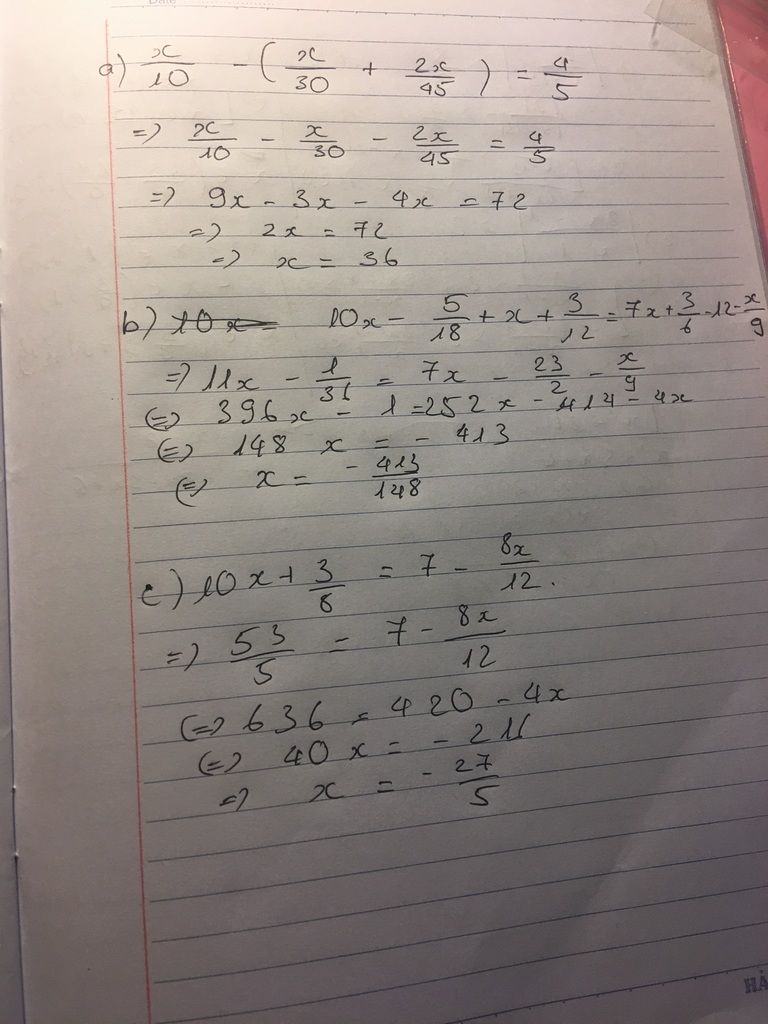 a) x/10 - (x/30 + 2x/45) = 4/5
=> x/10 - x/30 - 2x/45 = 4/5
=> 9x - 3x - 4x = 72
=> 2x = 72
=> x = 36
b) 10x - 5/18 + x + 3/12 = 7x + 3/6 - 12 - x/9
=> 11x - 1/36 = 7x - 23/2 - x/9
<=> 396x - 1 = 252x - 414 - 4x
<=> 148 x = - 413
<=> x = - 413/148
c) 10x + 3/8 = 7 - 8x/12.
=> 53/5 = 7 - 8x/12
<=> 636 = 420 - 4x
<=> 40x = - 216
=> x = - 27/5